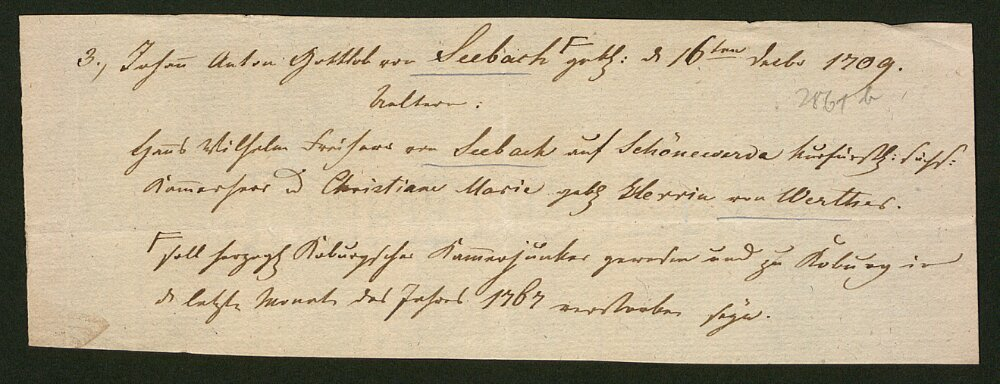 3., Johann Anton Gottlob von Seebach Γ gebh: d 16ten Decbr 1709.
Aeltern:
Hans Wilhelm Freiherr von Seebach auf Schönewerda kurfürstl: sächs:
Kammerherr u Christiane Marie gebh Herrin von Werther.
Γ soll herzogl Koburgscher Kammerjunker gewesen und zu Koburg in
d letzten Monat des Jahres 1767 verstorben seyn.